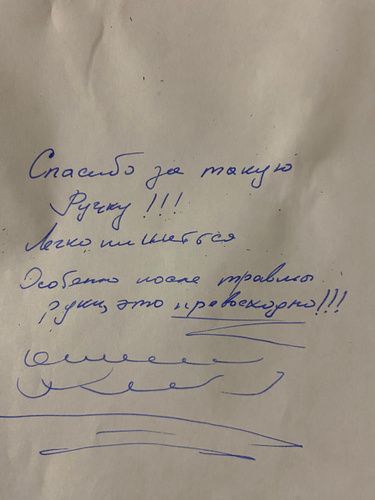 Спасибо за такую
Ручку!!!
Легко пишеться
Особенно после травмы
руки, это превосходно!!!